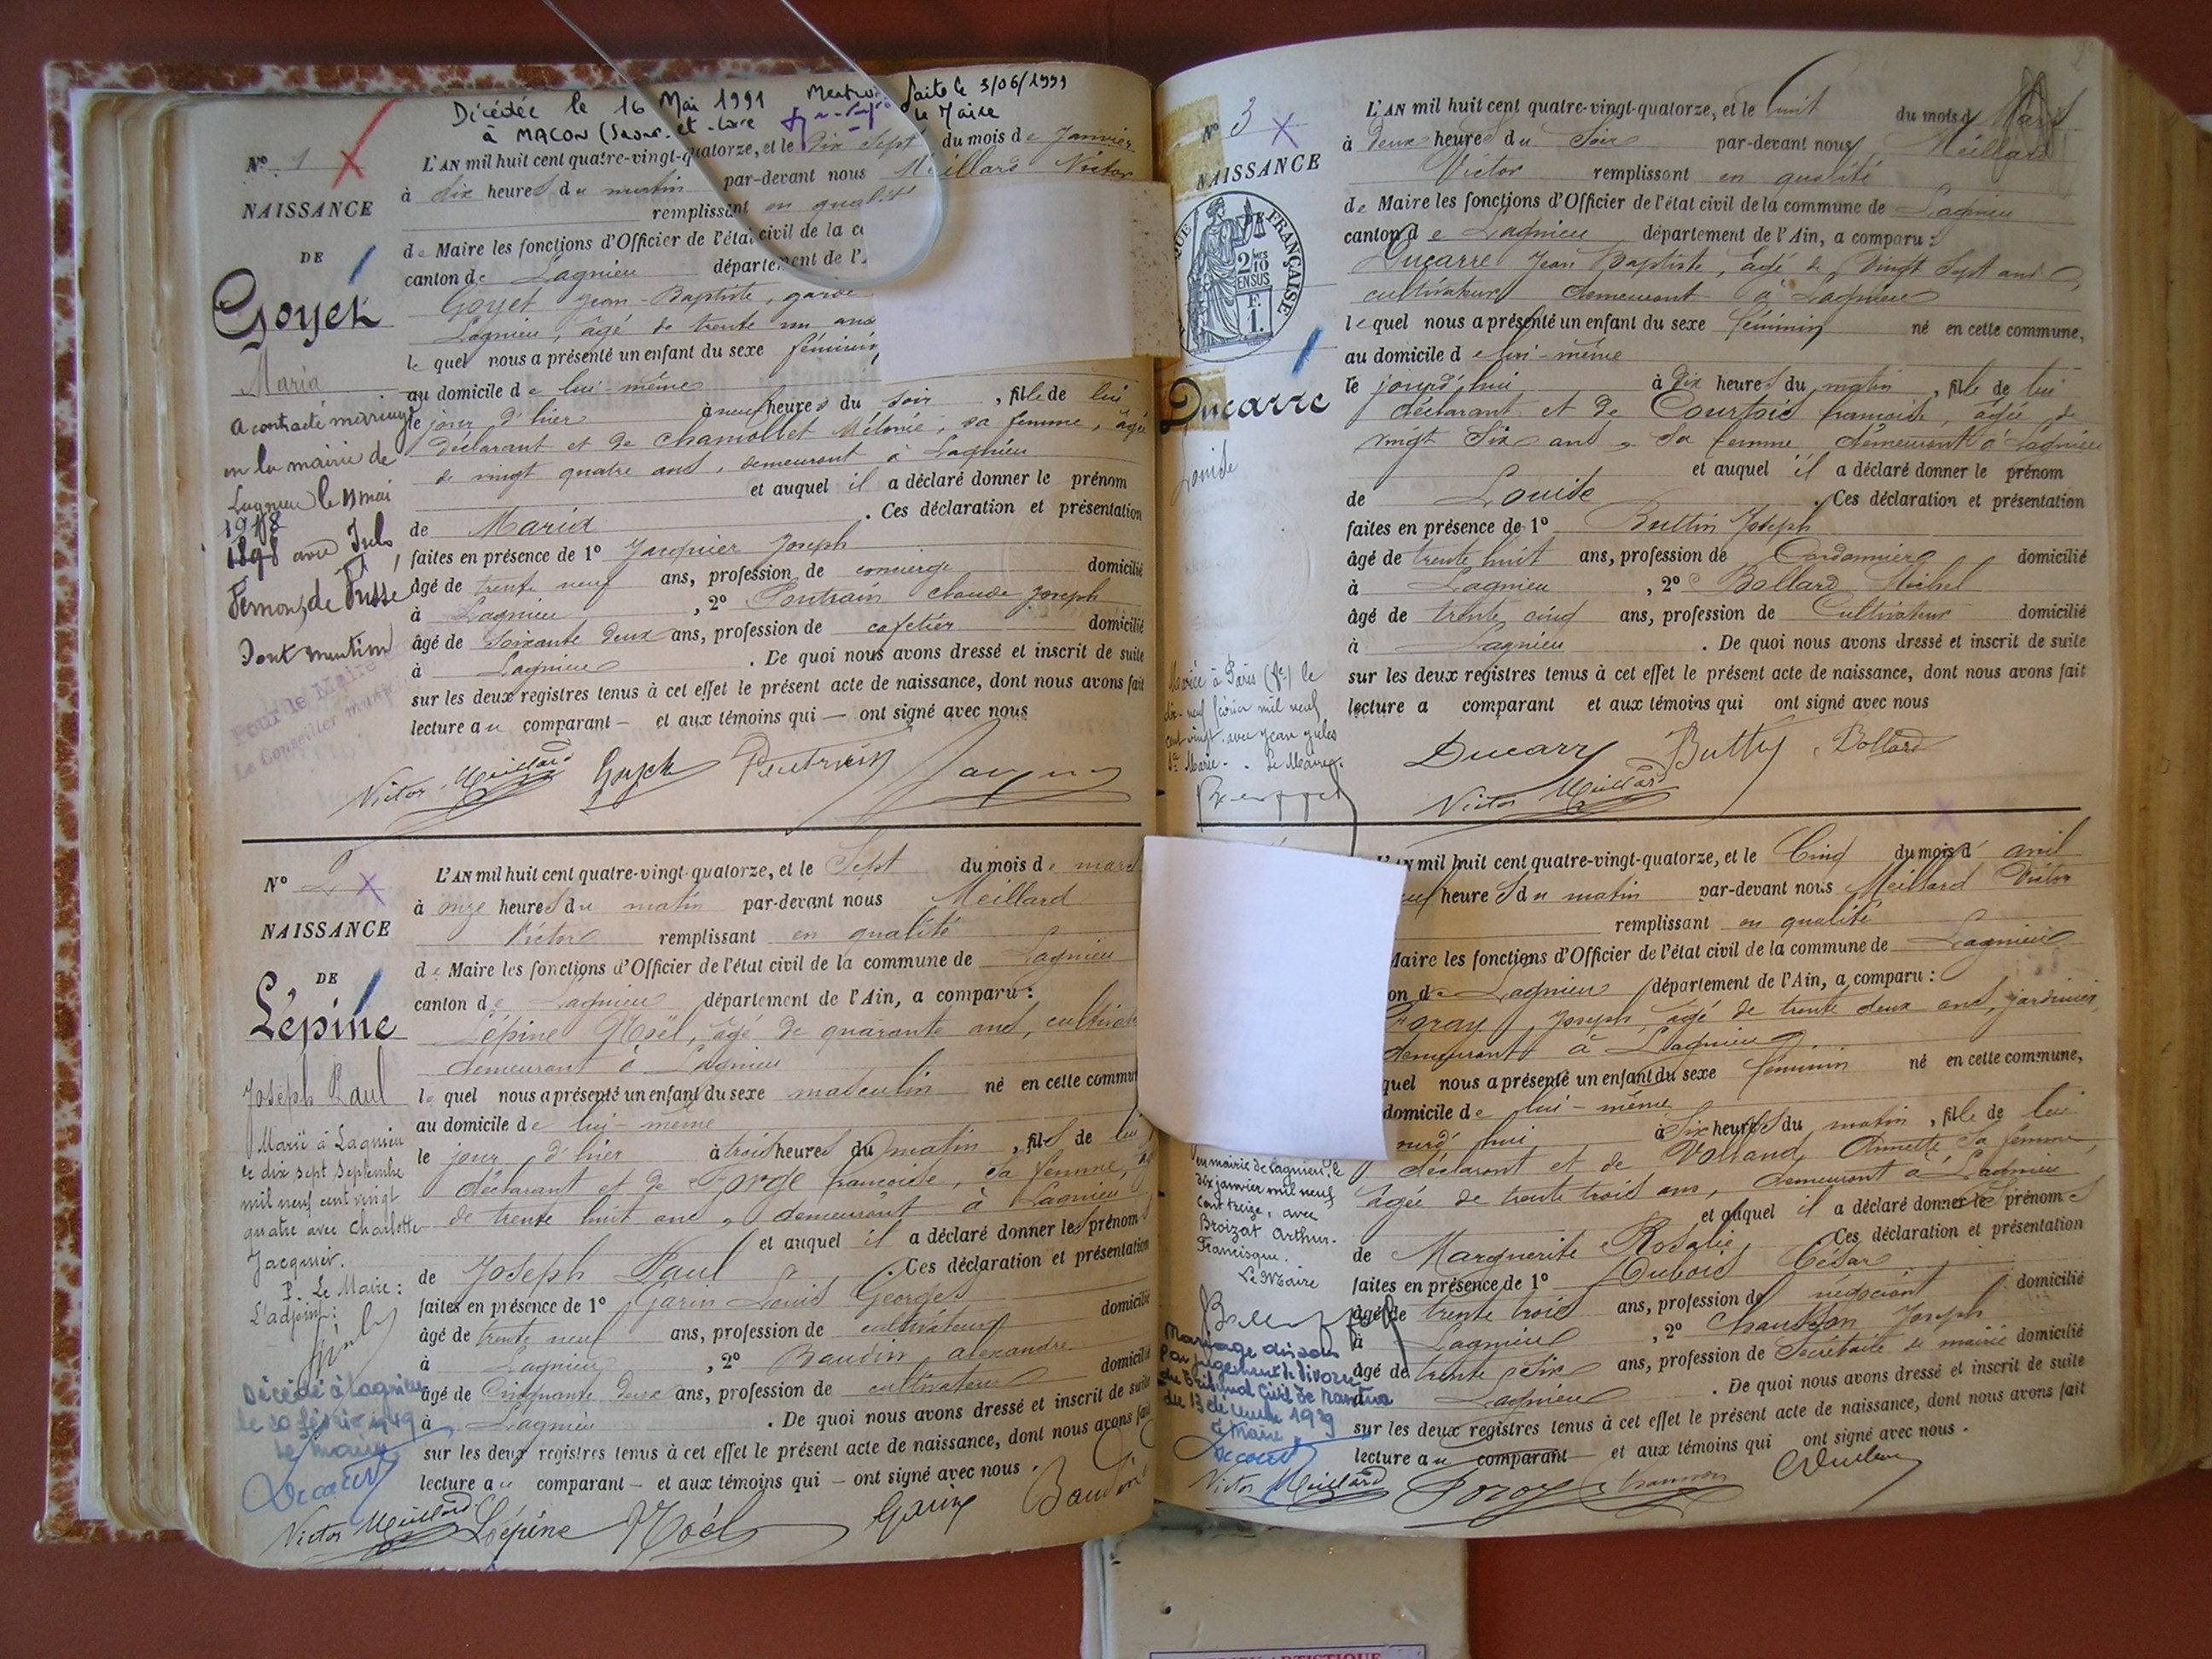 Décédée le 16 Mai 1991 faite le 3/06/1991
à MACON (Saone-et-Loire le Maire
N° 1
NAISSANCE
DE
Goyet
Maria
a contracté mariage
en la mairie de
Lagnieu le mai
1918
1898 avec Jules
Fernand, de
Dont mention
Pour le Maire
Le Conseiller munici
L'AN mil huit cent quatre-vingt-quatorze, et le Dix Sept du mois de Janvier
à dix heures du matin par-devant nous Meillard Victor
remplissant en qualité
de Maire les fonctions d'Officier de l'état civil de la co
canton de Lagnieu département de l'
Goyet Jean-Baptiste, garde
Lagnieu, âgé de trente un ans
le quel nous a présenté un enfant du sexe féminin,
au domicile de lui-même
le jour d'hier à neuf heures du soir, fille de lui
déclarant et de Chamollet Mélanie, sa femme, âgée
de vingt quatre ans, demeurant à Lagnieu
et auquel il a déclaré donner le prénom
de Maria. Ces déclaration et présentation
faites en présence de 1° Jacquier Joseph
âgé de trente neuf ans, profession de concierge domicilié
à Lagnieu, 2° Poutrain Claude Joseph
âgé de Soixante deux ans, profession de cafetier domicilié
à Lagnieu. De quoi nous avons dressé et inscrit de suite
sur les deux registres tenus à cet effet le présent acte de naissance, dont nous avons fait
lecture au comparant — et aux témoins qui — ont signé avec nous
Victor Meillard Goyet
N° 2
NAISSANCE
DE
Lépine
Joseph Paul
Marié à Lagnieu
le dix sept septembre
mil neuf cent vingt
quatre avec Charlotte
Jacquier.
P. Le Maire:
L'adjoint:
Décédé à Lagnieu
le 20 février 1949
Le maire
L'AN mil huit cent quatre-vingt-quatorze, et le Sept du mois de mars
à onze heures du matin par-devant nous Meillard
Victor remplissant en qualité
de Maire les fonctions d'Officier de l'état civil de la commune de Lagnieu
canton de Lagnieu département de l'Ain, a comparu:
Lépine Noël, âgé de quarante ans, cultivate
demeurant à Lagnieu
le quel nous a présenté un enfant du sexe masculin né en cette commun
au domicile de lui-même
le jour d'hier à trois heures du matin, fils de lui
déclarant et de Forge françoise, sa femme,
de trente huit ans, demeurant à Lagnieu
et auquel il a déclaré donner les prénom
de Joseph Paul. Ces déclaration et présentation
faites en présence de 1° Garin Louis Georges
âgé de trente neuf ans, profession de cultivateur domicilié
à Lagnieu, 2° Baudin alexandre
âgé de Cinquante deux ans, profession de cultivateur domicilié
à Lagnieu. De quoi nous avons dressé et inscrit de suite
sur les deux registres tenus à cet effet le présent acte de naissance, dont nous avons fait
lecture au comparant — et aux témoins qui — ont signé avec nous.
Victor Meillard Lépine Noël Garin Baudin
N° 3
NAISSANCE
QUE FRANÇAISE
2/10
EN SUS
F.
1.
Ducarre
Louise
Mariée à Paris le
dix-neuf février mil neuf
cent vingt avec Jean Jules
Ste Marie. Le Maire.
L'AN mil huit cent quatre-vingt-quatorze, et le huit du mois d Mars
à Deux heures du Soir par-devant nous Meillard
Victor remplissant en qualité
de Maire les fonctions d'Officier de l'état civil de la commune de Lagnieu
canton de Lagnieu département de l'Ain, a comparu:
Ducarre Jean Baptiste, âgé de Vingt Sept ans
cultivateur demeurant à Lagnieu
le quel nous a présenté un enfant du sexe féminin né en cette commune,
au domicile de lui-même
le jourd'hui à Dix heures du matin, fille de lui
déclarant et de Courtois francoise, âgée de
vingt Six ans, Sa femme demeurant à Lagnieu
et auquel il a déclaré donner le prénom
de Louise. Ces déclaration et présentation
faites en présence de 1° Buttin Joseph
âgé de trente huit ans, profession de Cordonnier domicilié
à Lagnieu, 2° Bollard Michel
âgé de trente cinq ans, profession de Cultivateur domicilié
à Lagnieu. De quoi nous avons dressé et inscrit de suite
sur les deux registres tenus à cet effet le présent acte de naissance, dont nous avons fait
lecture a comparant et aux témoins qui ont signé avec nous
Bollard
Victor Meillard
en mairie de Lagnieu, le
dix janvier mil neuf
cent treize, avec
Broizat Arthur-
Francisque.
Le Maire
Mariage dissous
par jugement de divorce
du Tribunal Civil de Nantua
du 13 1939
L'AN mil huit cent quatre-vingt-quatorze, et le Cinq du mois d' avril
heures du matin par-devant nous Meillard Victor
remplissant en qualité
Maire les fonctions d'Officier de l'état civil de la commune de Lagnieu
on de Lagnieu département de l'Ain, a comparu:
Foray Joseph, âgé de trente deux ans, jardinier,
demeurant à Lagnieu
quel nous a présenté un enfant du sexe féminin né en cette commune,
domicile de lui-même
hui à Six heures du matin, fille de lui
déclarant et de Volland Annette sa femme
âgée de trente trois ans, demeurant à Lagnieu
et auquel il a déclaré donner le prénoms
de Marguerite Rosalie Ces déclaration et présentation
faites en présence de 1° Dubois César
âgé de trente trois ans, profession de négociant domicilié
à Lagnieu, 2° Joseph
âgé de trente Six ans, profession de Secrétaire de mairie domicilié
Lagnieu. De quoi nous avons dressé et inscrit de suite
sur les deux registres tenus à cet effet le présent acte de naissance, dont nous avons fait
lecture au comparant et aux témoins qui ont signé avec nous.
Victor Meillard Foray